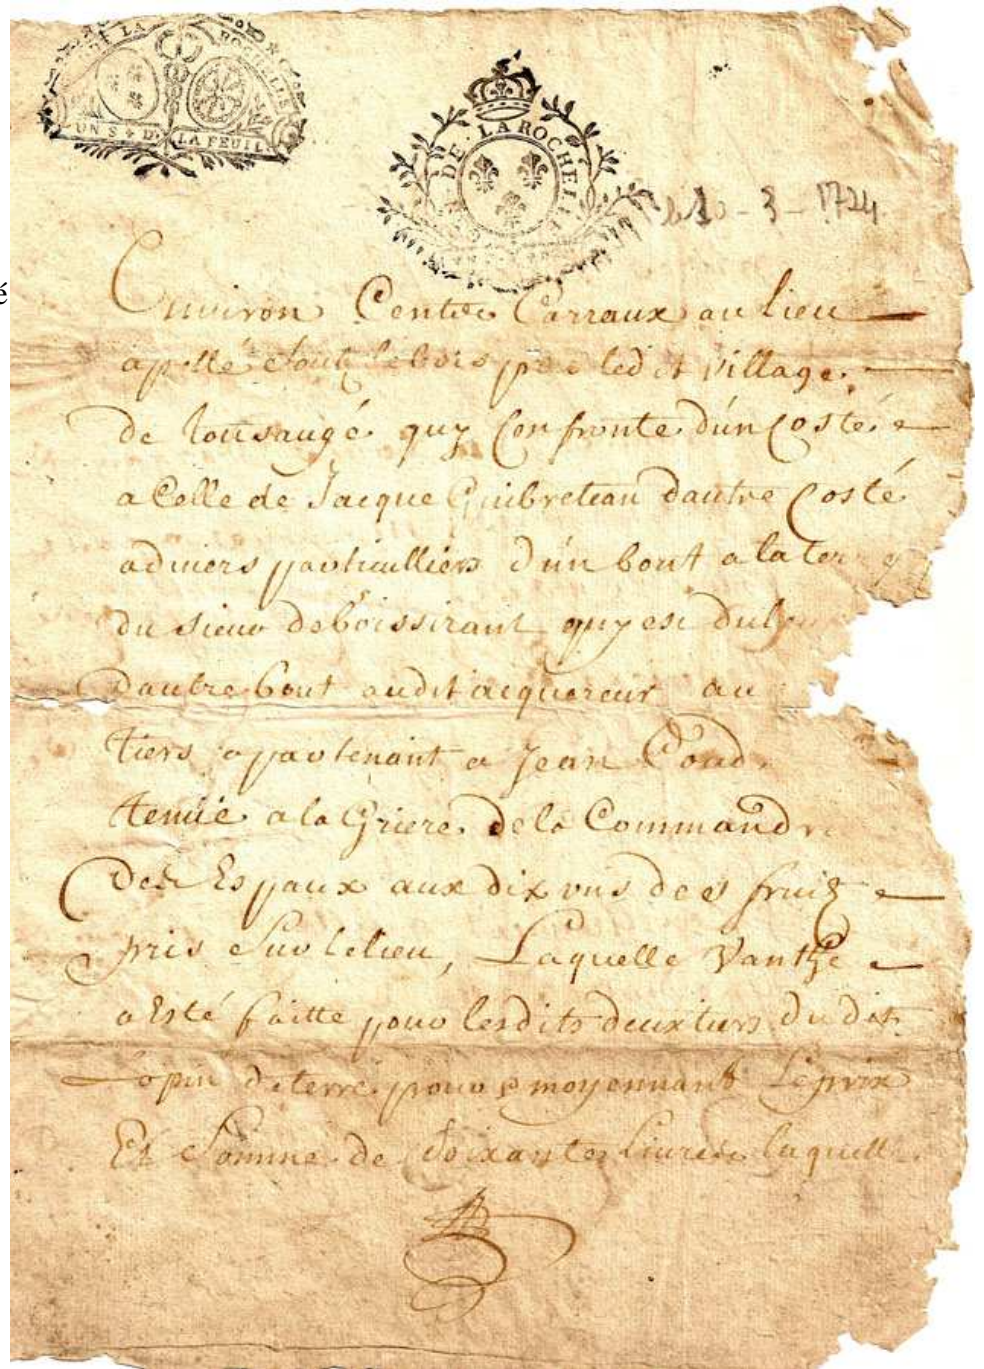 DE LA ROCHELLE
UN S 4 D. LA FEUIL
DE LA ROCHELLE
10 - 3 - 1724
é
Environ Cent Carraux au lieu
apellé Soutz le bois pres ledit village
de quy Confronte d'ún Costé
a Celle de Jacque Guibreteau dautre Costé
a divers particulliers d'ún bout a la ter
du sieur de boissirant quy est du
Dautre bout audit acquereur au
tiers apartenant a Jean Coud
tenüe a la Griere de la Command
Des Espaux aux dix uns des fruitz
pris Sur le lieu, Laquelle Vanthe
a Esté faitte pour lesdits deux tiers Du dit
Lopin de terre pour & moyennant Le prix
Et Somme de Soixante livres laquelle